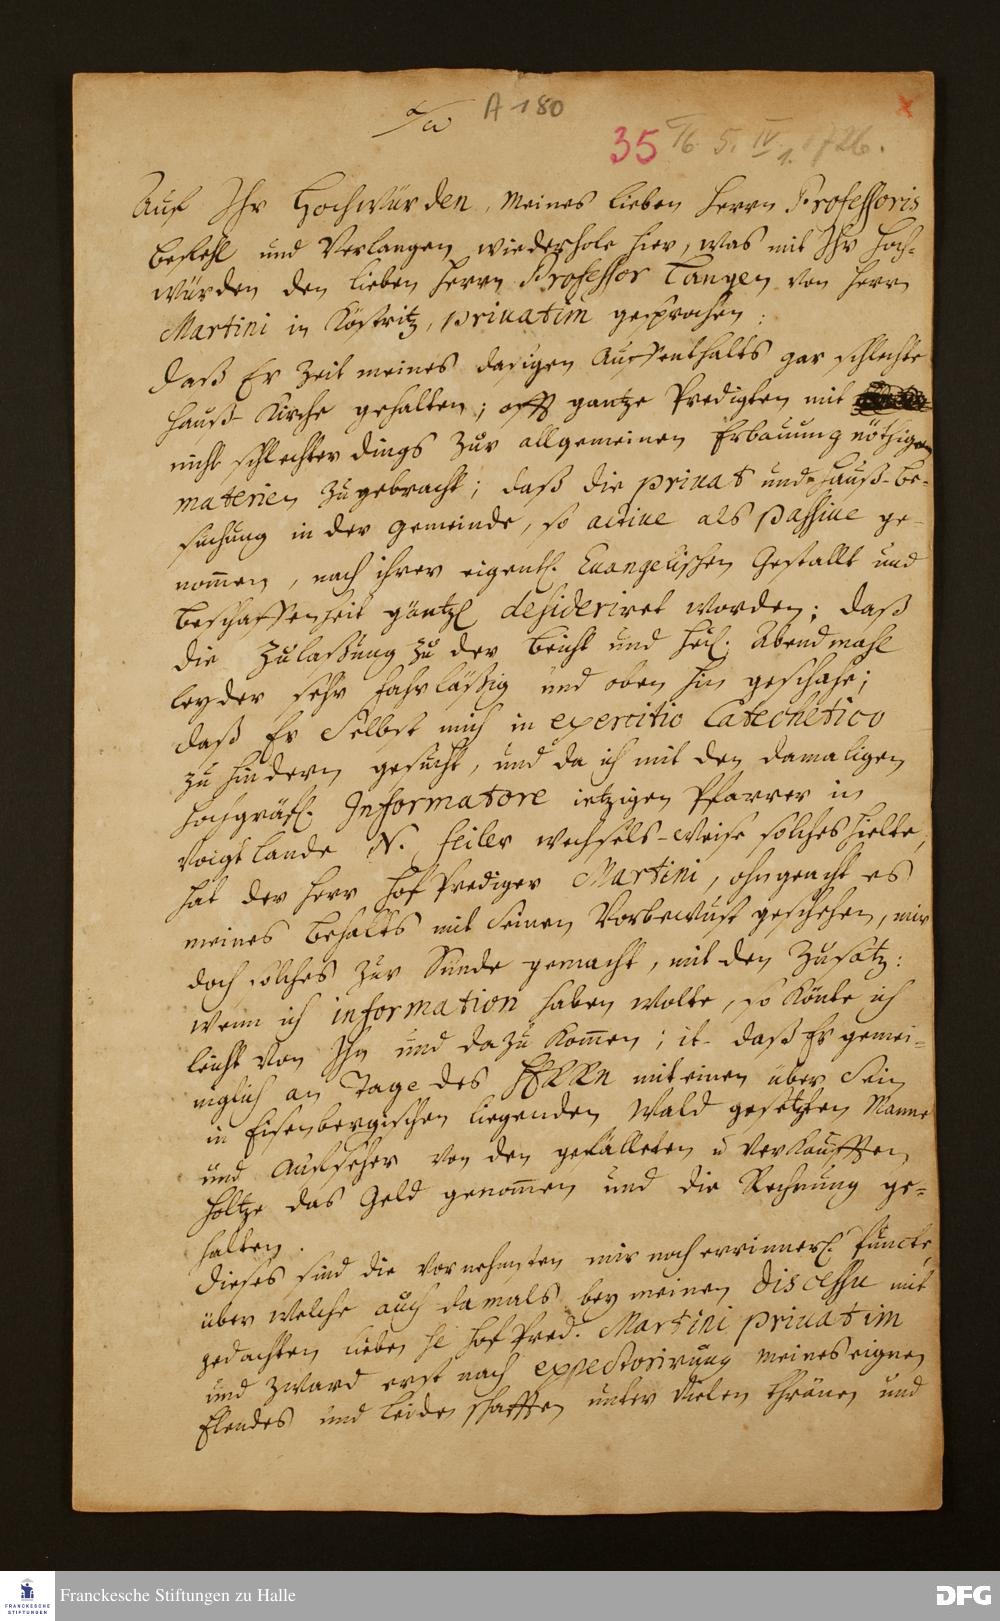 A 180
35 5. IV. 1726.
Auf Ihr Hochwürden, meines lieben Herrn Professoris
befehl und Verlangen, wiederhole hier, was mit Ihr Hoch-
würden den lieben Herrn Professor Langen von Herrn
Martini in Köstritz, priuatim gesprochen:
daß Er Zeit meines dasigen Auffenthalts gar schlechte
Hauß-Kirche gehalten; offt gantze Predigten mit
nicht schlechter dings zur allgemeinen Erbauung nöthigen
materien zugebracht; daß die priuat und Hauß-be-
suchung in der Gemeinde, so actiue als passiue ge-
nom̄en, nach ihrer eigentl. Euangelischen Gestallt und
beschaffenheit gäntzl. desideriret worden; daß
die Zulaßung zu der beicht und heil. Abendmahl
leyder sehr fahrläßig und oben hin geschahe;
daß Er Selbst mich in exercitio Catechetico
zu hindern gesucht, und da ich mit den damaligen
Hochgräfl. Informatore ietzigen Pfarrer in
Voigtlande N. Feiler wechsels-weise solches hielte,
hat der Herr Hof Prediger Martini, ohngeacht es
meines behalts mit Seinen Vorbewust geschehen, mir
doch solches zur Sünde gemacht, mit den Zusatz:
wenn ich information haben wolte, so könte ich
leicht von Ihn und dazu kom̄en; it. daß Er gemei-
niglich an Tage des HERRN mit einen über Sein
in Eisenbergischen liegenden Wald gesetzten Manne
und Aufseher von den gefälleten u. verkaufften
Holtze das Geld genom̄en und die Rechnung ge-
halten.
Dieses sind die vornehmsten mir noch errinnerl. Puncte,
über welche auch damals bey meinen discessu mit
gedachten lieben H. Hof Pred. Martini priuatim
und zward erst nach expectorirung meines eignen
Elendes und leidenschafften unter vielen thränen und
Franckesche Stiftungen zu Halle
FRANCKESCHE
STIFTUNGEN
DFG